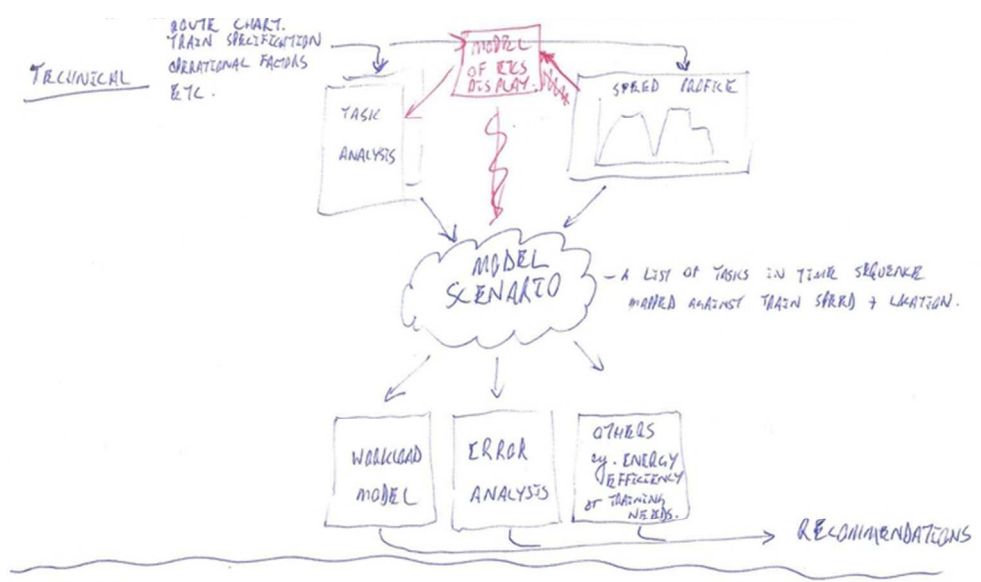 ROUTE CHART.
TRAIN SPECIFICATION
OPERATIONAL FACTORS
ETC.
TECHNICAL
MODEL
OF ETCS
DISPLAY.
TASK
ANALYSIS
SPEED PROFILE
MODEL
SCENARIO
- A LIST OF TASKS IN TIME SEQUENCE
MAPPED AGAINST TRAIN SPEED + LOCATION.
WORKLOAD
MODEL
ERROR
ANALYSIS
OTHERS
eg. ENERGY
EFFICIENCY
or TRAINING
NEEDS.
RECOMMENDATIONS